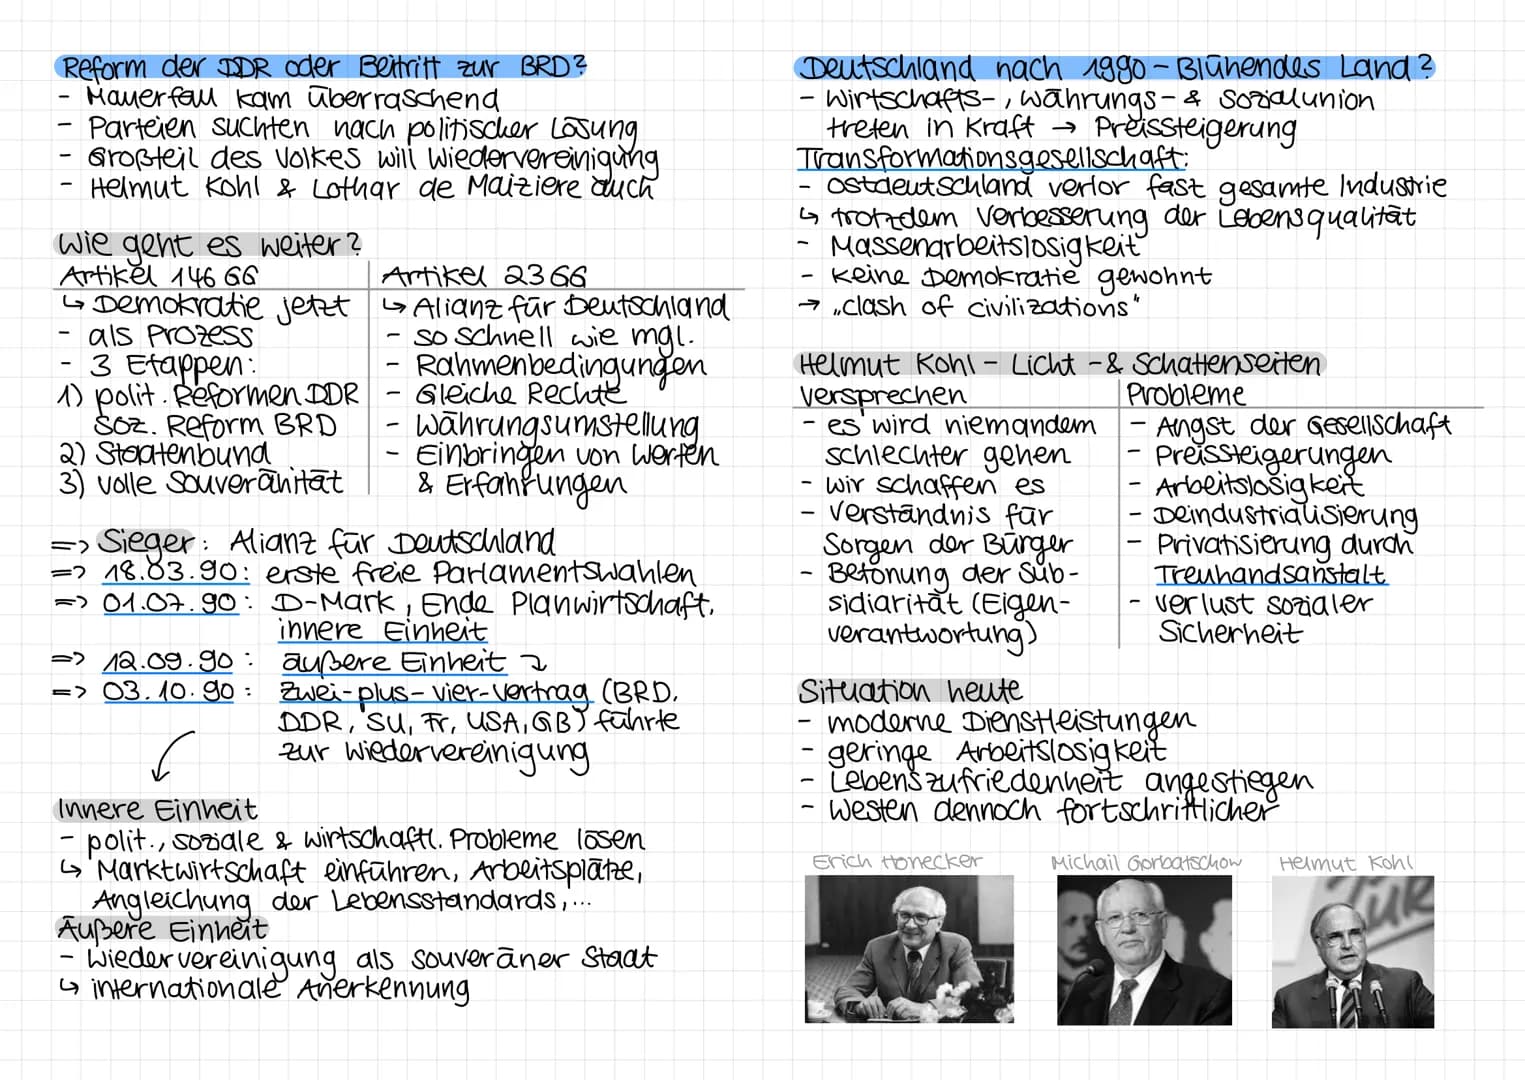 Reform der DDR oder Beitritt zur BRD?
- Mauerfall kam überraschend
- Parteien suchten nach politischer Lösung
- Großteil des Volkes will Wiedervereinigung
- Helmut Kohl & Lothar de Maiziere auch
Wie geht es weiter?
Artikel 146 GG
↳ Demokratie jetzt
- als Prozess
- 3 Etappen:
1) polit. Reformen DDR
soz. Reform BRD
2) Staatenbund
3) volle Souveränität
Artikel 23 GG
↳ Alianz für Deutschland
- so schnell wie mgl.
- Rahmenbedingungen
- Gleiche Rechte
- Währungsumstellung
- Einbringen von Werten
& Erfahrungen
=> Sieger: Alianz für Deutschland
=> 18.03.90: erste freie Parlamentswahlen
=> 01.07.90: D-Mark, Ende Planwirtschaft,
innere Einheit
=> 12.09.90: äußere Einheit ⤵
=> 03.10.90: Zwei-plus-vier-Vertrag (BRD,
DDR, SU, Fr, USA, GB) führte
zur Wiedervereinigung
Innere Einheit
- polit., soziale & wirtschaftl. Probleme lösen
↳ Marktwirtschaft einführen, Arbeitsplätze,
Angleichung der Lebensstandards,...
Äußere Einheit
- Wiedervereinigung als souveräner Staat
↳ internationale Anerkennung
Deutschland nach 1990 - Blühendes Land?
- Wirtschafts-, Währungs- & Sozialunion
treten in Kraft → Preissteigerung
Transformationsgesellschaft:
- Ostdeutschland verlor fast gesamte Industrie
↳ trotzdem Verbesserung der Lebensqualität
- Massenarbeitslosigkeit
- keine Demokratie gewohnt
→ „clash of civilizations"
Helmut Kohl - Licht -& Schattenseiten
Versprechen
- es wird niemandem
schlechter gehen
- wir schaffen es
- Verständnis für
Sorgen der Bürger
- Betonung der Sub-
sidiarität (Eigen-
verantwortung)
Probleme
- Angst der Gesellschaft
- Preissteigerungen
- Arbeitslosigkeit
- Deindustrialisierung
- Privatisierung durch
Treuhandsanstalt
- Verlust sozialer
Sicherheit
Situation heute
- moderne Dienstleistungen
- geringe Arbeitslosigkeit
- Lebenszufriedenheit angestiegen
- Westen dennoch fortschrittlicher
Erich Honecker
Michail Gorbatschow
Helmut Kohl